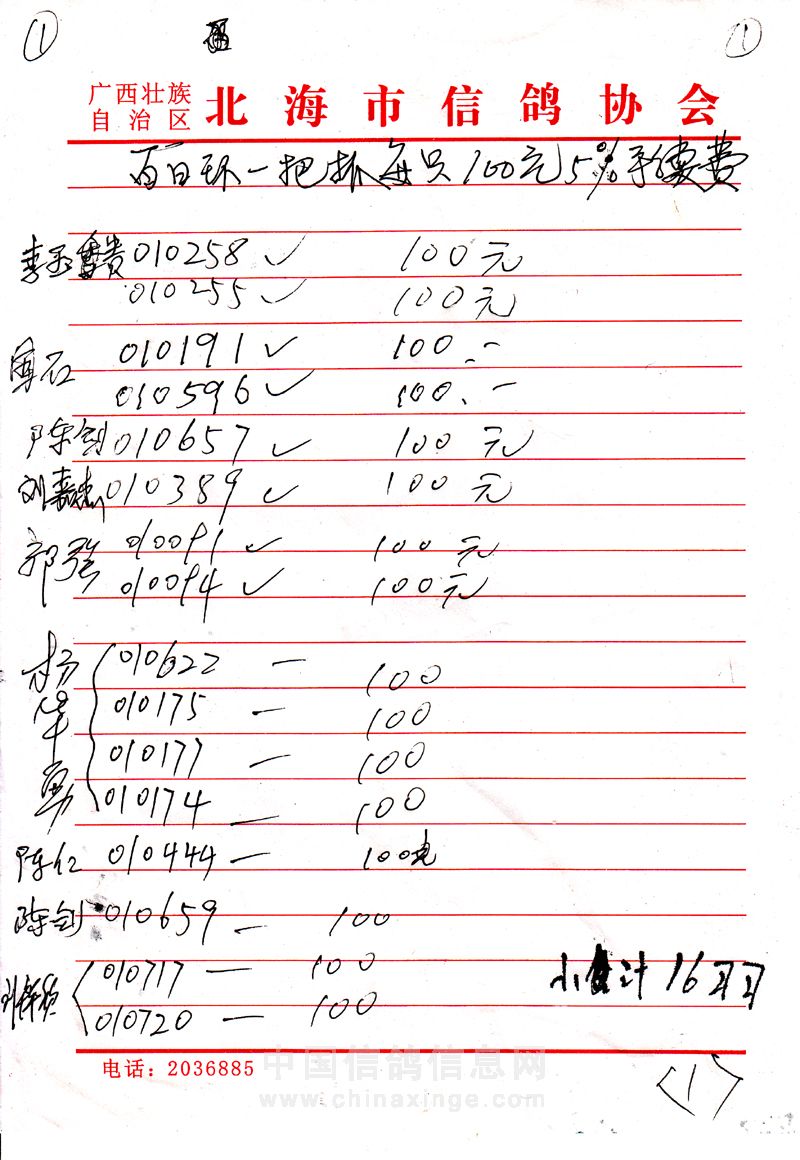 ① ①
广西壮族自治区 北海市信鸽协会
百日环一把抓每只100元5%手续费
010258 ✓ 100元
010255 ✓ 100元
010191 ✓ 100.-
010596 ✓ 100.-
陈剑 010657 ✓ 100元
刘嘉杰 010389 ✓ 100元
郭强 010091 ✓ 100元
010094 ✓ 100元
杨华勇 010622 — 100
010175 — 100
010177 — 100
010174 — 100
陈仁 010444 — 100
陈剑 010659 — 100
010717 — 100
010720 — 100
小计 16羽
电话：2036885
<1>
中国信鸽信息网
www.chinaxinge.com